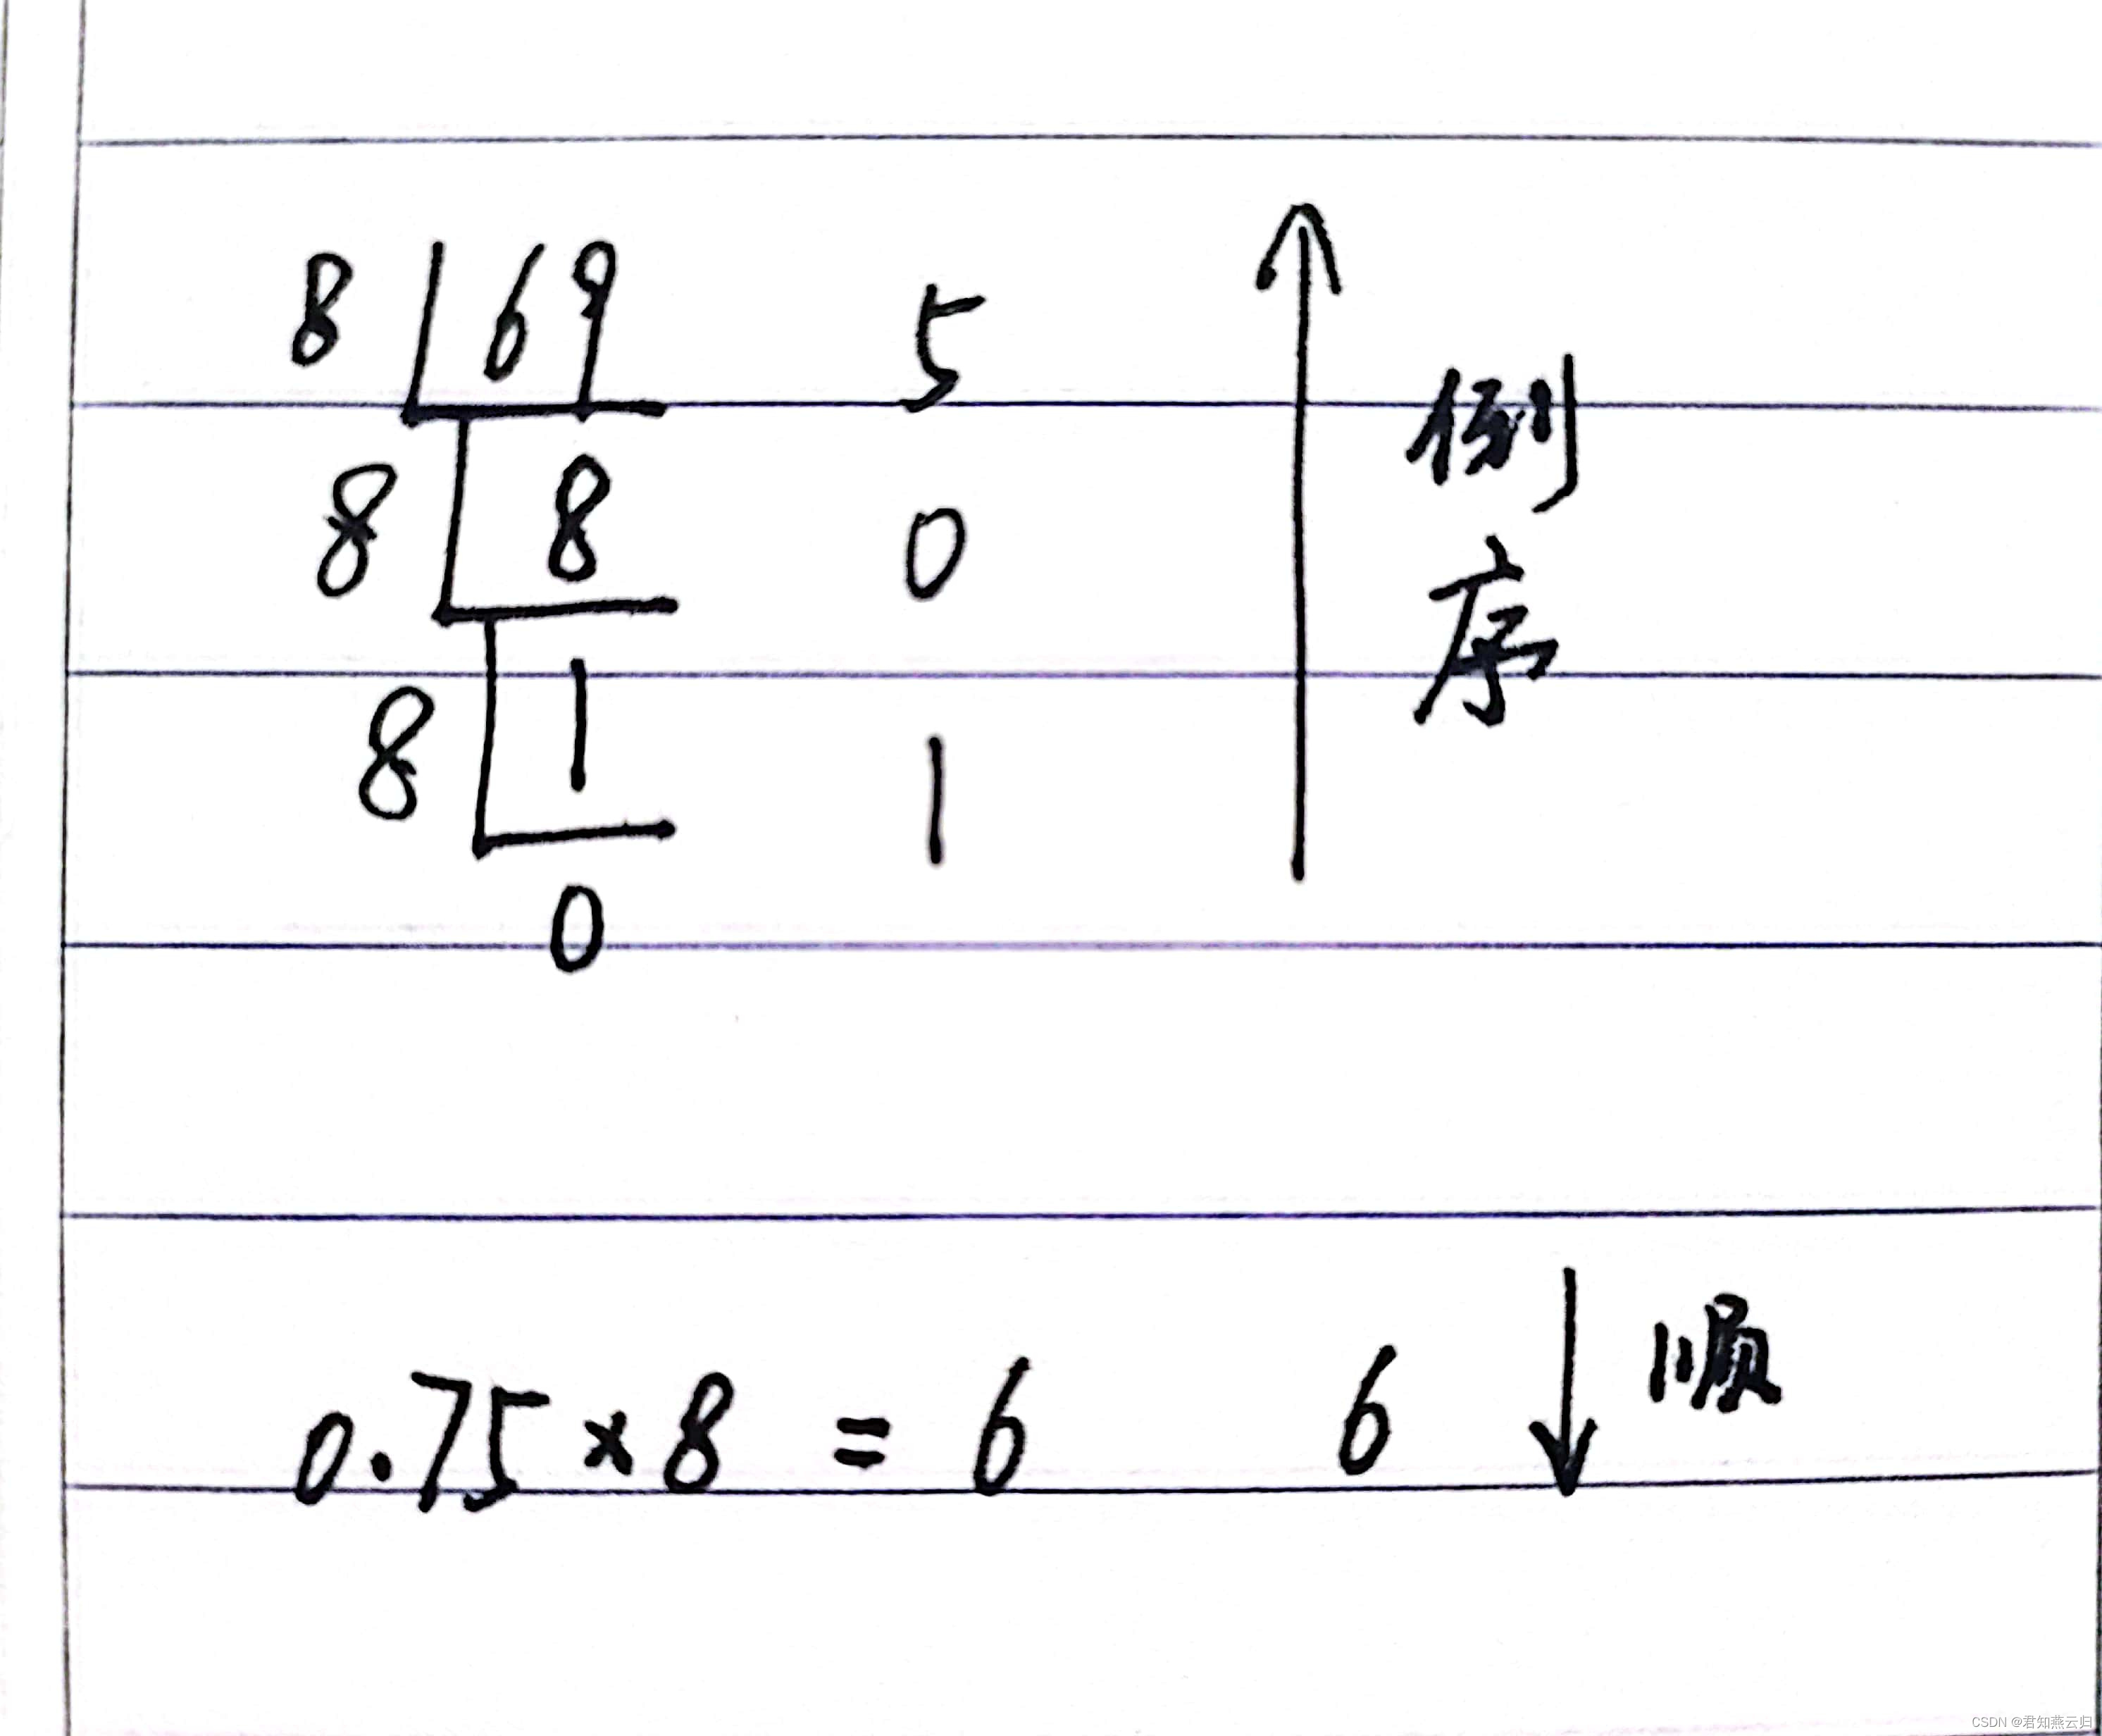 8 69 5
倒
8 8 0
序
8 1 1
0
0.75×8 = 6 6 顺
CSDN @君知燕云归